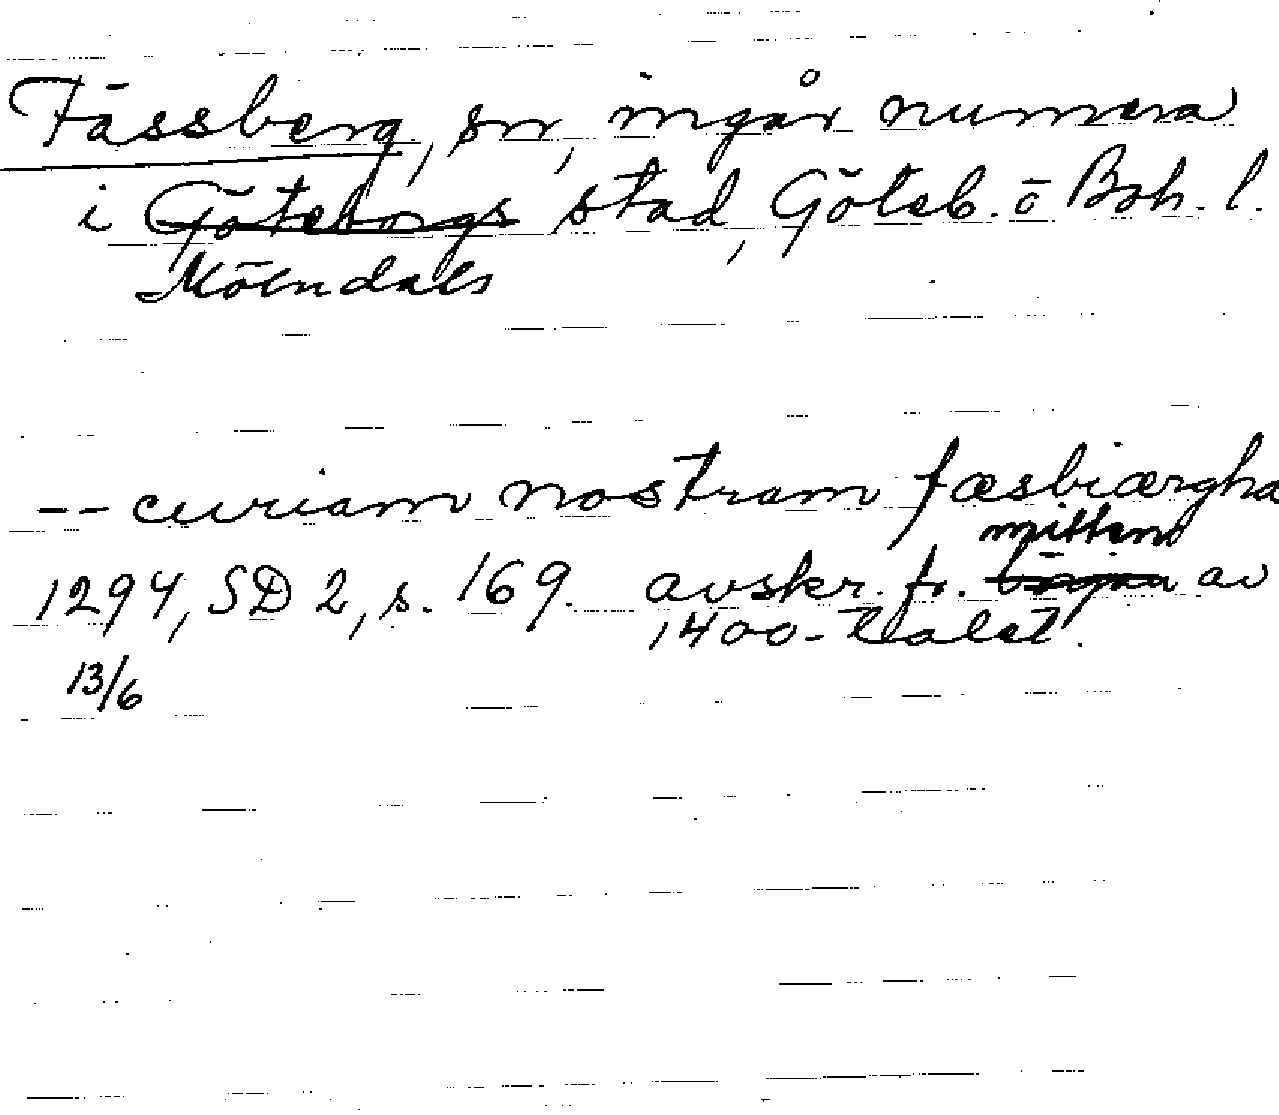 Fässberg, sn, ingår numera
i Göteborgs stad, Göteb. o Boh. l.
Mölndals
-- curiam nostram fæsbiærgha
mitten
1294, SD 2, s. 169. avskr. fr. början av
1400-talet.
13/6